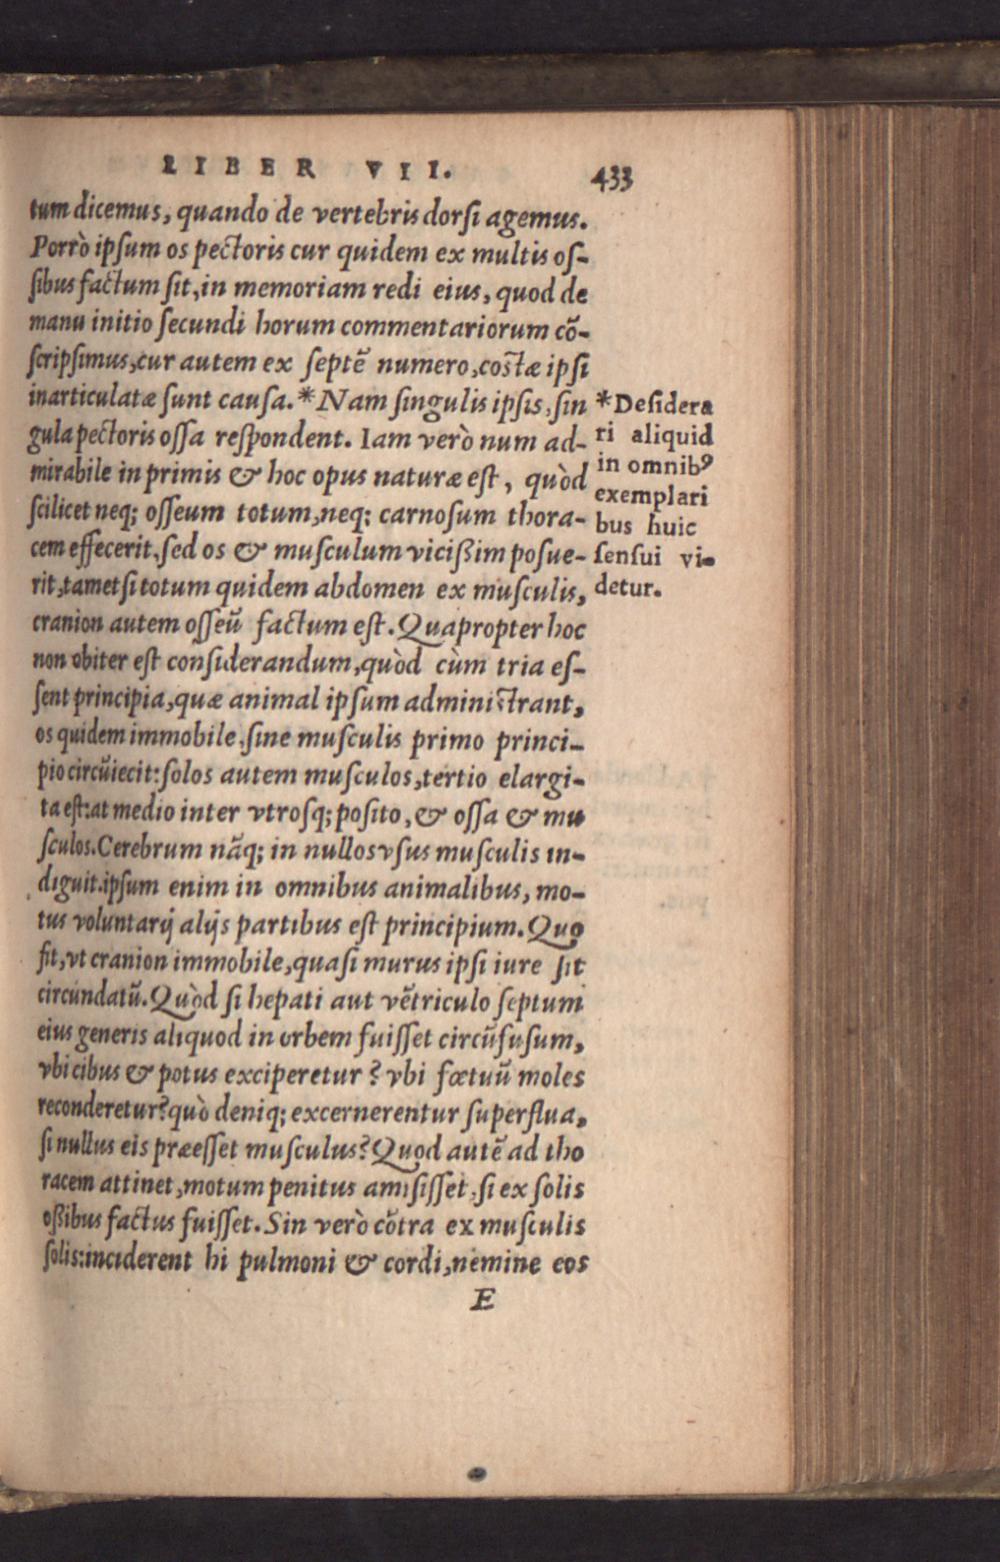 LIBER VII. 433
tum dicemus, quando de vertebris dorsi agemus.
Porrò ipsum os pectoris cur quidem ex multis os-
sibus factum sit, in memoriam redi eius, quod de
manu initio secundi horum commentariorum cõ-
scripsimus, cur autem ex septẽ numero, costæ ipsi
inarticulatæ sunt causa. *Nam singulis ipsis, sin
gula pectoris ossa respondent. Iam verò num ad-
mirabile in primis & hoc opus naturæ est, quòd
scilicet neq; osseum totum, neq; carnosum thora-
cem effecerit, sed os & musculum vicißim posue-
rit, tametsi totum quidem abdomen ex musculis,
cranion autem osseũ factum est. Quapropter hoc
non obiter est considerandum, quòd cùm tria es-
sent principia, quæ animal ipsum administrant,
os quidem immobile, sine musculis primo princi-
pio circũiecit: solos autem musculos, tertio elargi-
ta est: at medio inter vtrosq; posito, & ossa & mu
sculos. Cerebrum nãq; in nullos vsus musculis in-
diguit. ipsum enim in omnibus animalibus, mo-
tus voluntarij alijs partibus est principium. Quo
fit, vt cranion immobile, quasi murus ipsi iure sit
circundatũ. Quòd si hepati aut vẽtriculo septum
eius generis aliquod in orbem fuisset circũfusum,
vbi cibus & potus exciperetur? vbi fœtuũ moles
reconderetur? quò deniq; excernerentur superflua,
si nullus eis præesset musculus? Quod autẽ ad tho
racem attinet, motum penitus amisisset, si ex solis
oßibus factus fuisset. Sin verò cõtra ex musculis
solis: inciderent hi pulmoni & cordi, nemine eos
E
*Desidera
ri aliquid
in omnibꝰ
exemplari
bus huic
sensui vi-
detur.